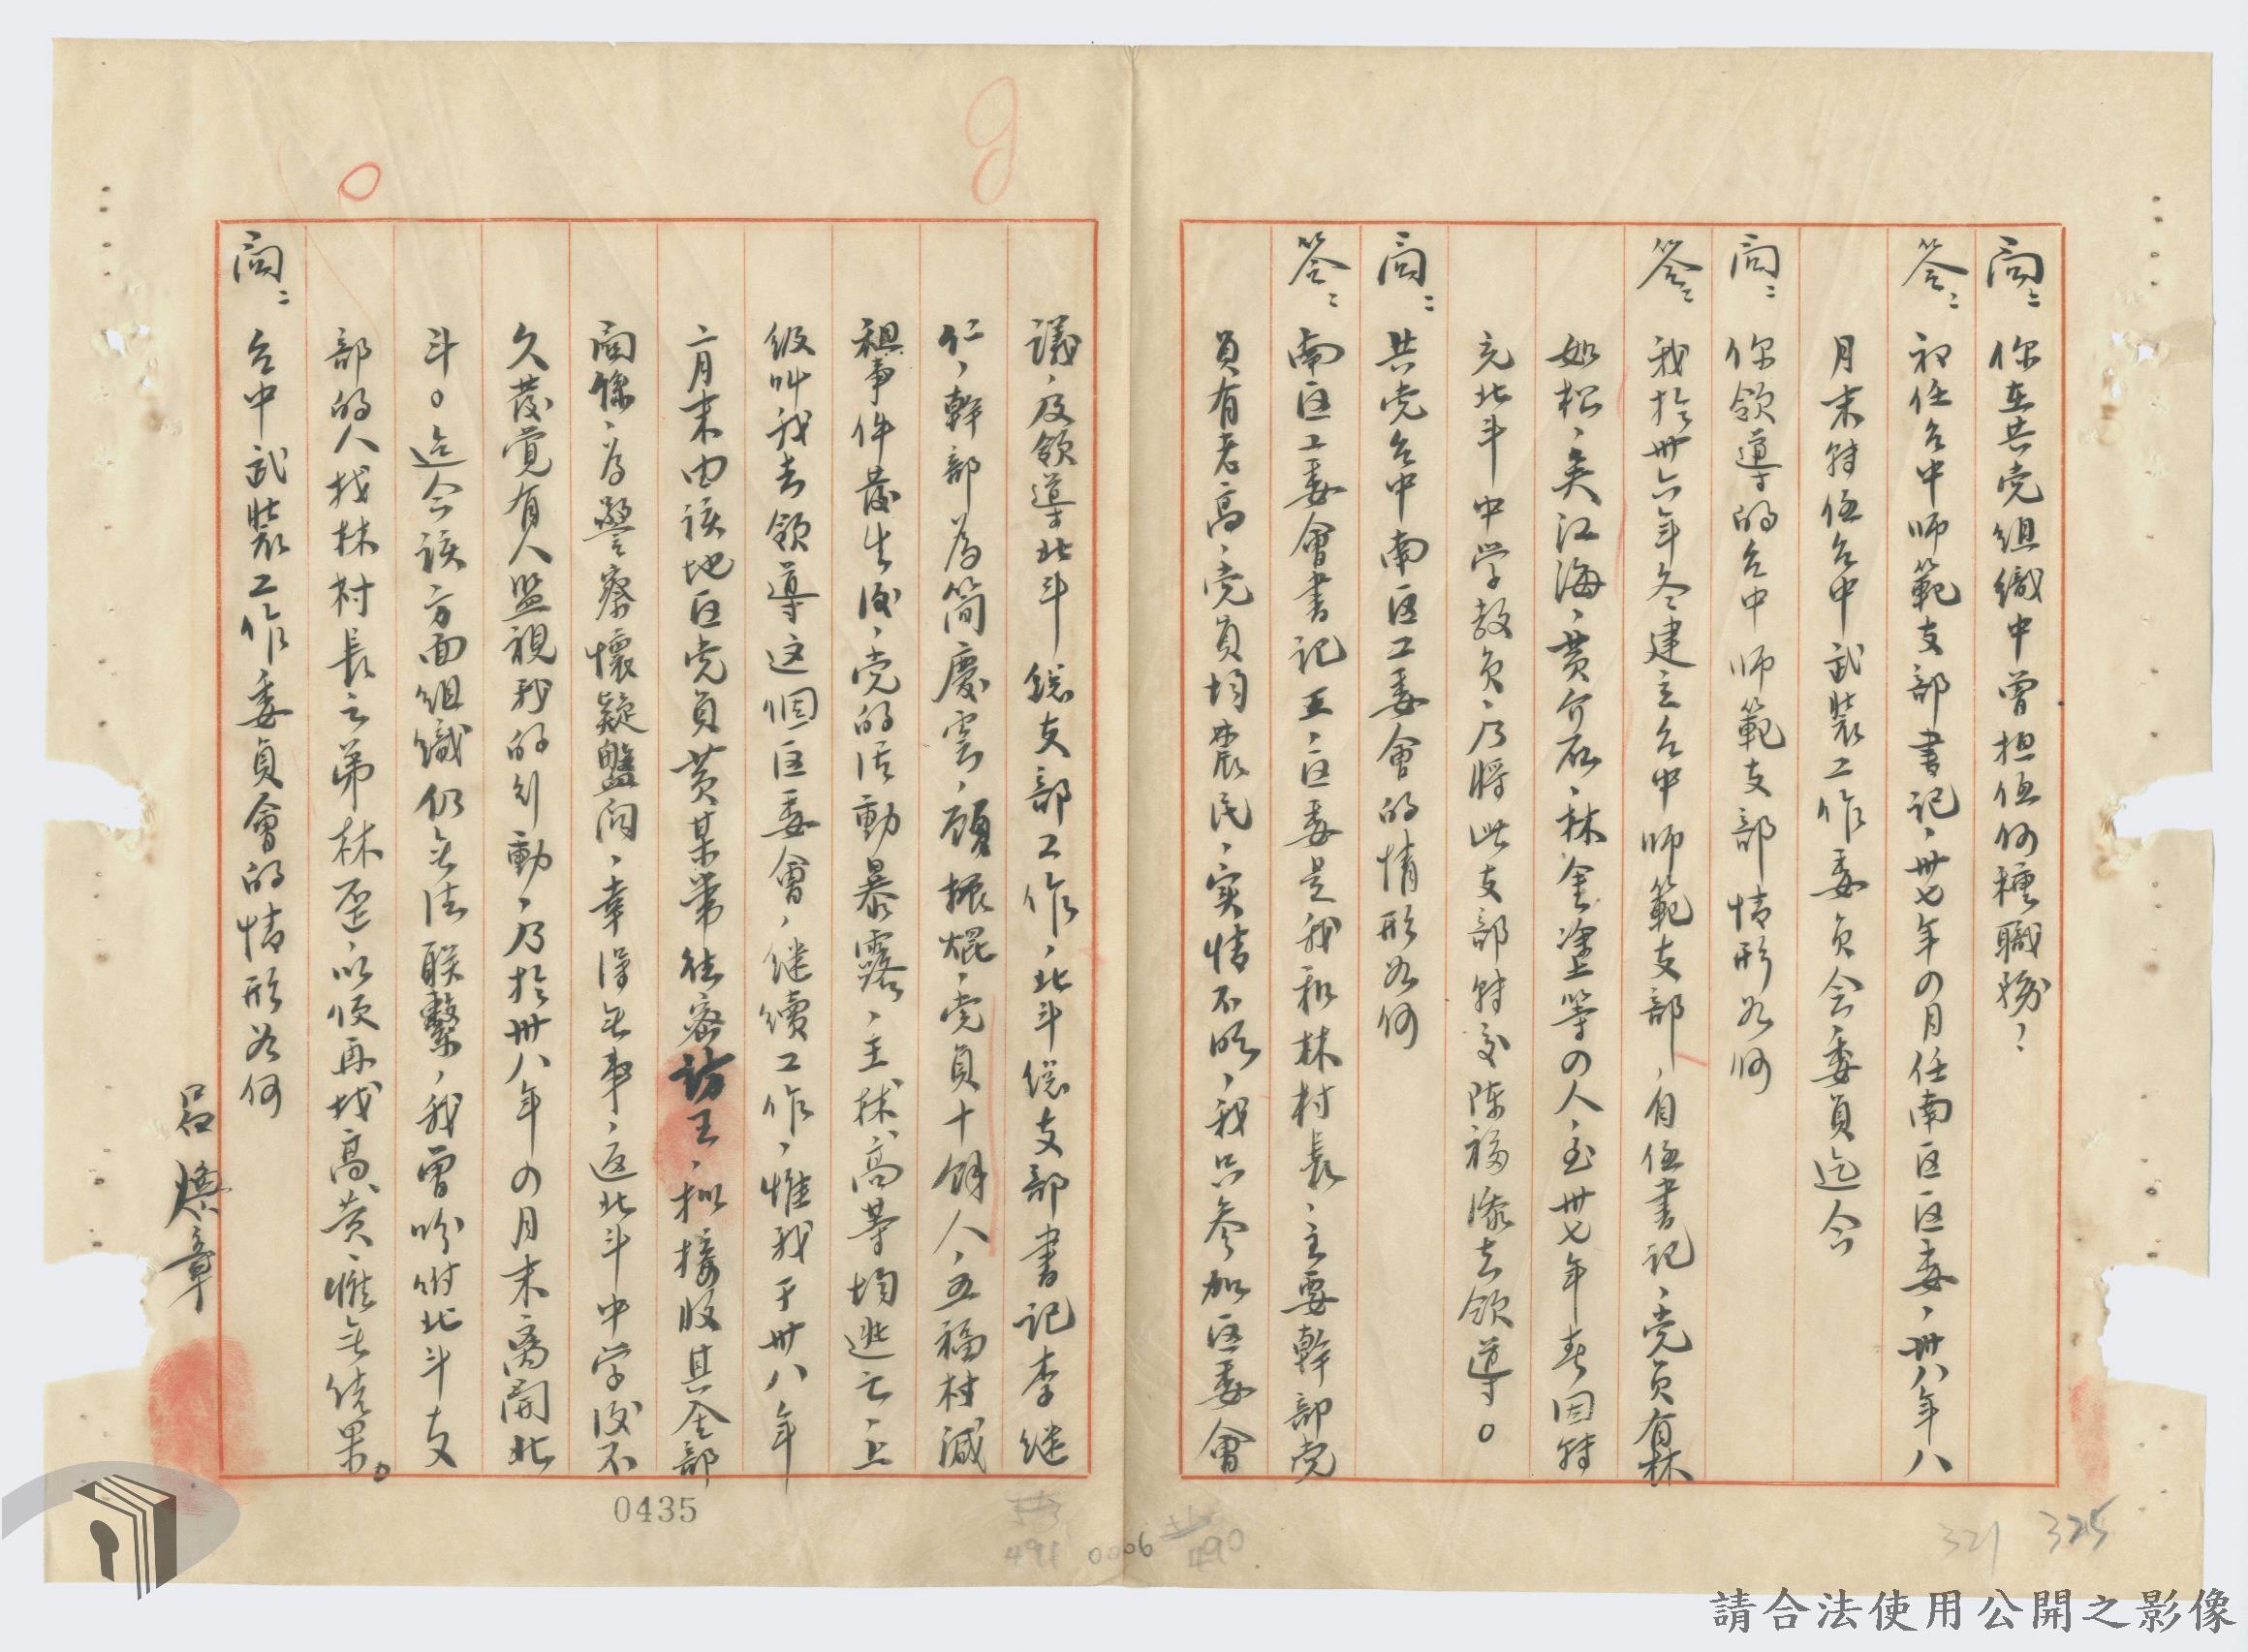 問：你在共党組織中曾担任何種職務？
答：初任台中师範支部書記、卅七年の月任南区区委、卅八年八
月末转任台中武裝工作委员会委員迄今
問：你領導的台中师範支部情形如何
答：我於卅六年冬建立台中师範支部、自任書記、党员有林
如松、吳江海、黄介石、林金塗等の人、至卅七年春因转
充北斗中学教员、乃將此支部转交陈福添去領導。
問：共党台中南区工委會的情形如何
答：南区工委會書記王、区委是我和林村長、主要幹部党
員有老高、党員均農民、实情不明、我只参加区委會
議、及領導北斗總支部工作、北斗總支部書記李継
仁、幹部為简慶雲、顏振焜、党員十餘人、五福村減
租事件發生後、党的活動暴露、王、林、高等均逃亡、上
级叫我去領導这個区委會、継續工作、惟我于卅八年
二月末由該地区党員黄某帶往密訪王、拟接收其全部
関係、为警察懷疑盤问、幸得无事、返北斗中学後不
久發覚有人監視我的行動、乃於卅八年の月末离開北
斗。迄今該方面組織仍无法联繫、我曾吩咐北斗支
部的人找林村長之弟林歪、以便再找高、黄、惟无结果。
問：台中武裝工作委員會的情形如何
呂煥章
0435
491 0006 490
321 325
請合法使用公開之影像